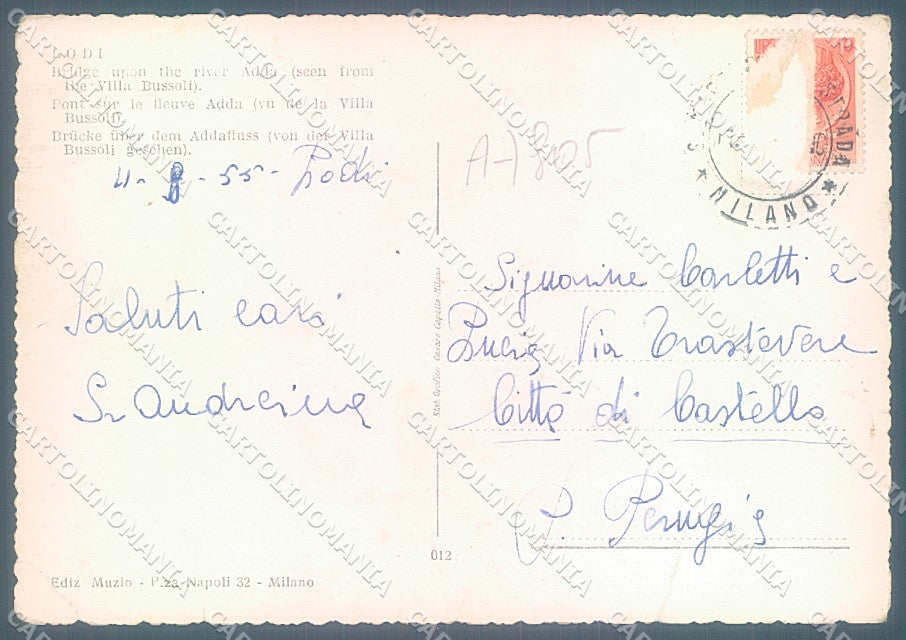 LODI
Bridge upon the river Adda (seen from
the Villa Bussoli).
Pont sur le fleuve Adda (vu de la Villa
Bussoli).
Brücke über dem Addafluss (von der Villa
Bussoli geschen).
11-8-55- Lodi
Saluti cari
Sr Andreina
A-
MILANO
STRADA
Signorine Carletti e
Lucia Via Trastevere
Città di Castello
P. Perugia
012
Ediz. Muzio - P.za Napoli 32 - Milano
CARTOLINOMANIA